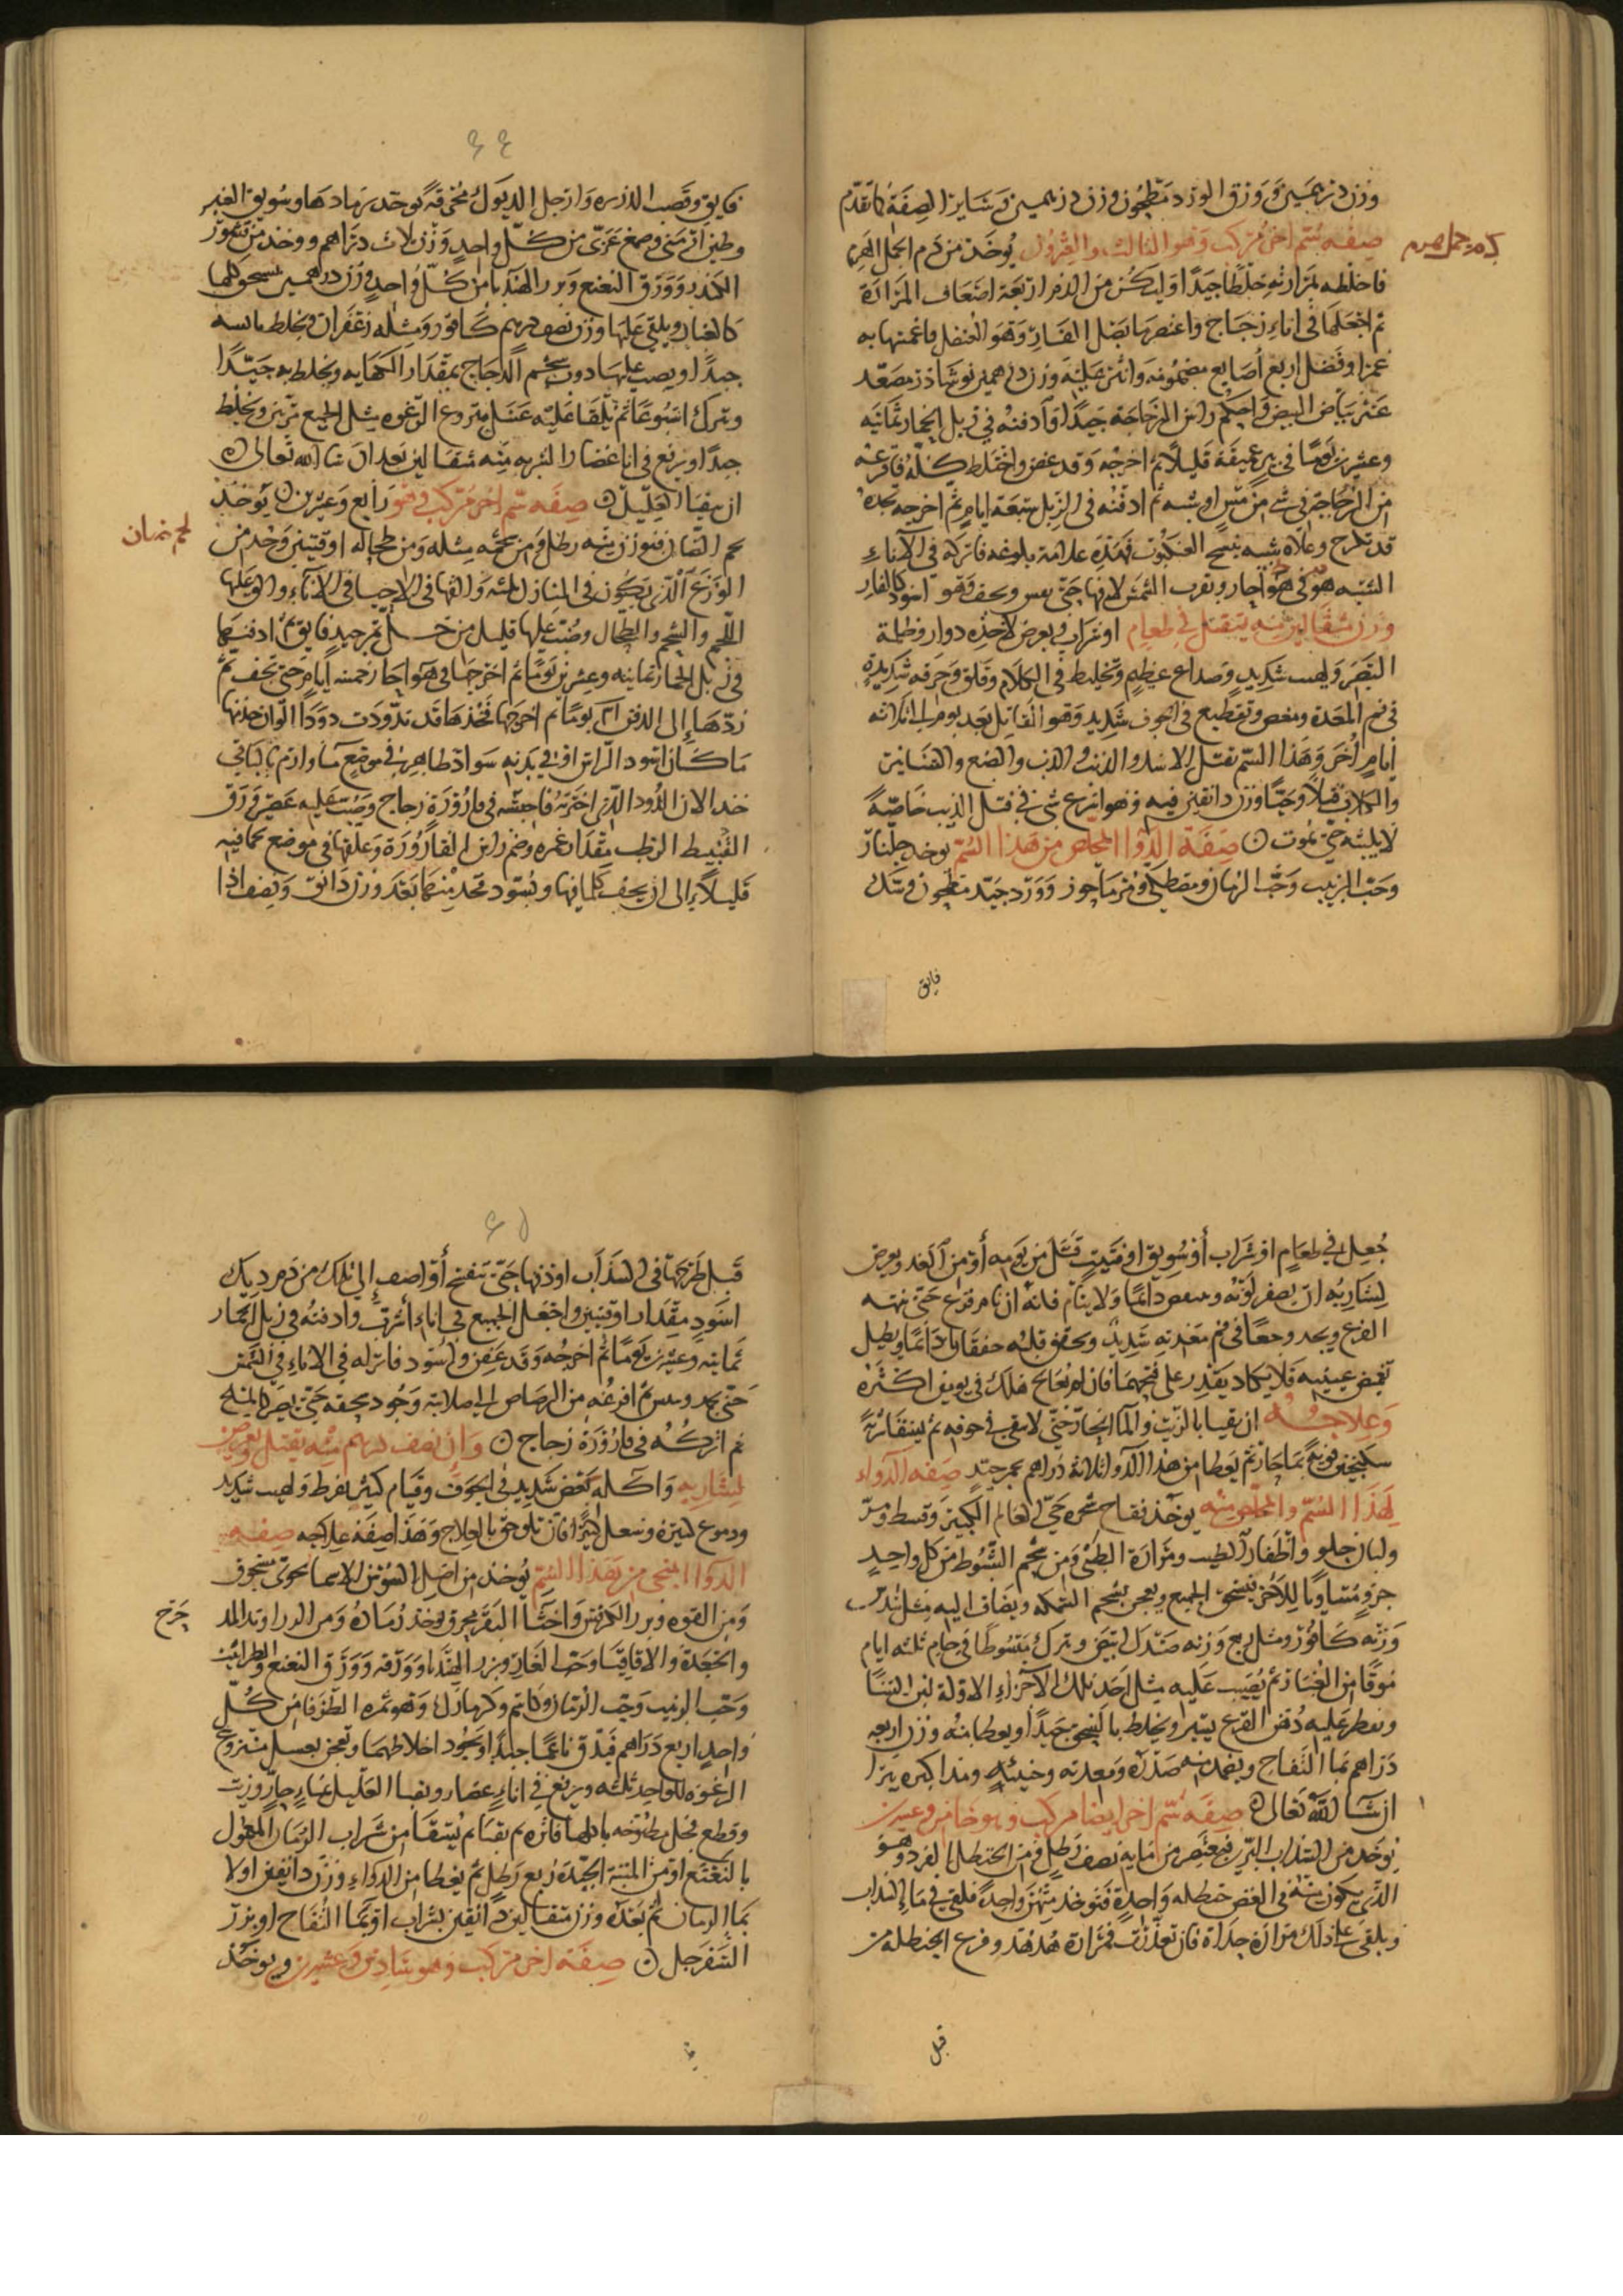 وزن درهمين وورق الورد مطحون وزن درهمين وسائر الصفة كما تقدم
صفة سم اخر مركب وهو الثالث والعشرون يوخذ من دم الجمل الهرم
فاخلطه بمرارته خلطا جيدا وليكن من الدم اربعة اضعاف المرارة
ثم اجعلها في اناء زجاج واعتصر ما بصل الفار وهو العنصل فاغمرها به
غمرا وفضل اربع اصابع مضمومة وانثر عليه وزن درهمين نوشادر مصعد
عن بياض البيض واحكم راس الزجاجة جيدا وادفنه في زبل الحمار ثمانية
وعشرين يوما في بير عميقة قليلا ثم اخرجه وقد عفن واختلط كله فافرغه
من الزجاجة في شي من مس او شبه ثم ادفنه في الزبل سبعة ايام ثم اخرجه تجده
قد تكرج وعلاه شبه نسج العنكبوت فهذه علامة بلوغه فاتركه في الاناء
الشبه هو في هوا حار وبقرب الشمس لا فيها حتى يبس ويجف وهو اسود كالقار
وزن مثقالين منه يقتل في طعام او شراب ويعرض لآخذه دوار وظلمة
البصر ولهيب شديد وصداع عظيم وتخليط في الكلام وقلق وحرقة شديدة
في فم المعدة ومغص وتقطيع في الجوف شديد وهو القاتل بعد يوم الى ثلاثة
ايام اخر وهذا السم يقتل الاسد والدب والذيب والضبع والهنانين
والكلاب قتلا وحيا وزن دانقين فيه وهو اسرع شي في قتل الذيب خاصية
لا يلبثه حتى يموت صفة الدوا المخلص من هذا السم يوخذ جلنار
وحب الزبيب وحب الرمان ومصطكى وثمر ما جوز وورد جيد مطحون وسك
فايق
فايق وقصب الذريرة وارجل الديوك محرقة يوخذ رمادها وسويق الغبير
وطين ارمني وصمغ عربي من كل واحد وزن ثلاث دراهم ووخذ من قشور
الكندر وورق النعنع وبزر الهندبا من كل واحد وزن درهمين تسحق كلها
كالغبار ويلقى عليها وزن نصف درهم كافور ومثله زعفران ويخلط بالسحق
جيدا ويصب عليها دون شحم الدجاج بمقدار الكفاية ويخلط به جيدا
ويترك اسبوعا ثم يلقا عليه عسل منزوع الرغوة مثل الجميع مرتين ويخلط
جيدا ويرفع في انا غضار الشربة منه مثقالين بعد ان شا الله تعالى
ان يتقيا العليل صفة سم اخر مركب وهو رابع وعشرين يوخذ
لحم انسان فيوزن منه رطل ومن شحمه مثله ومن طحاله اوقيتين وخذ من
الوزغ الذي يكون في المنازل ثلثه والقها في الاحيا في الاناء والق عليها
اللحم والشحم والطحال وصب عليها قليل من خل خمر جيد فايق ثم ادفنها
في زبل الحمار ثمانية وعشرين يوما ثم اخرجها في هوا حار خمسة ايام حتى تجف ثم
ردها الى الدفن ٢١ يوما ثم اخرجها فخذها قد تدودت دودا الوان خذ منها
ما كان اسود الراس او في بدنه سواد ظاهر في موضع منا وارم بالباقي
خذ الان الدود الذي اخترته فاجعله في قارورة زجاج وصب عليه عصير ورق
القنبيط الرطب مقدار غمره وضم راس القارورة وعلقها في موضع كما فيه
قليلا الى ان يجف كلما فيها ويسود تجد منهما بعد وزن دانق ونصف اذا
جعل في طعام او شراب او سويق او فتيت قتل من يومه او من الغد ويعرض
لشاربه ان يصفر لونه ويبهت دائما ولا ينام فانه ان نام فزع حتى ينبه
الفزع ويجد وجعا في فم معدته شديد ويخفق قلبه خفقانا دائما ويطيل
تغميض عينيه فلا يكاد يقدر على فتحهما فان لم يعالج هلك في يومين اكثره
وعلاجه ان يقيا بالزيت والما الحار حتى لا يبقى في جوفه ثم يسقا شربة
سكنجبين بزوري بما حار ثم يعطا من هذا الدوا ثلاثة دراهم بخمر جيد صفة الدواء
لهذا السم والمخلص منه يوخذ تفاح شجرة حي العالم الكبير وقسط ومر
ولسان حلو واظفار الطيب ومرارة الظبي ومن شحم الشبوط من كل واحد
جزو متساويا للآخر يسحق الجميع ويعجن بشحم السمكة ويضاف اليه مثل ثلث
وزنه كافور ومثل ربع وزنه صندل ابيض ويترك مبسوطا في جام ثلثة ايام
موقا من الغبار ثم يصب عليه مثل احد تلك الاجزاء الاولة لبن النسا
ويقطر عليه دهن القرع يسيرا ويخلط بالسحق جيدا ويعطا منه وزن اربعة
دراهم بما التفاح ويضمد منه صدره ومعدته وجنبيه ومذاكيره يبرا
ان شا الله تعالى صفة سم اخر ايضا مركب وهو خامس وعشرين
يوخذ من السذاب البري فيعتصر من مايه نصف رطل ومن الحنظل المفرد وهو
الذي يكون منه في الغصن حنظلة واحدة فيوخذ منهن واحدة فتلقى في ما السذاب
ويلقى على ذلك مرارة حداة فان تعذرت فمرارة هدهد وفرع الحنظلة من
قبل
قبل طرحها في السذاب او وزنها حتى تنفتح واضف الى ذلك من دم ديك
اسود مقدار اوقيتين واجعل الجميع في اناء اسرب وادفنه في زبل الحمار
ثمانية وعشرين يوما ثم اخرجه وقد عفن واسود فاتركه في الاناء في الشمس
حتى يجمد ويبس ثم افرغه من الرصاص الى صلاية وجود سحقه حتى يصير كالملح
ثم اتركه في قارورة زجاج وان نصف درهم منه يقتل ويعرض
لشاربه وآكله مغص شديد في الجوف وقيام كثير مفرط ولهيب شديد
ودموع كثيرة وسعل كثيرا فان تلوحق بالعلاج وهذا صفة علاجه صفة
الدواا المنجي من هذا السم يوخذ من اصل السوسن الاسمانجوني سحوق
ومن القوه وبزر الكرفس واخثا البقر يحرق يوخذ رماده ومن الدراوند المدحرج
والجعدة والاقاقيا وحب الغار وبزر الهندبا وورقه وورق النعنع والطراثيث
وحب الزبيب وحب الرمان وكاشم وكزمازك وهو ثمرة الطرفا من كل
واحد اربع دراهم فيدق ناعما جيدا ويجود اخلاطهما وتعجن بعسل منزوع
الرغوة للواحد ثلثه ويرفع في اناء غضار ويقيا العليل بماء حار وزيت
وقطع فجل مطبوخة باكلها فاتره ثم يقيا ثم يسقا من شراب الرمان المعمول
بالنعنع او من الميبة الجيدة ربع رطل ثم يعطا من الدواء وزن دانقين اولا
بما الرمان ثم بعده وزن مثقالين دانقين بشراب او بما التفاح او بزر
السفرجل صفة اخر مركب وهو سادس وعشرين ويوخذ